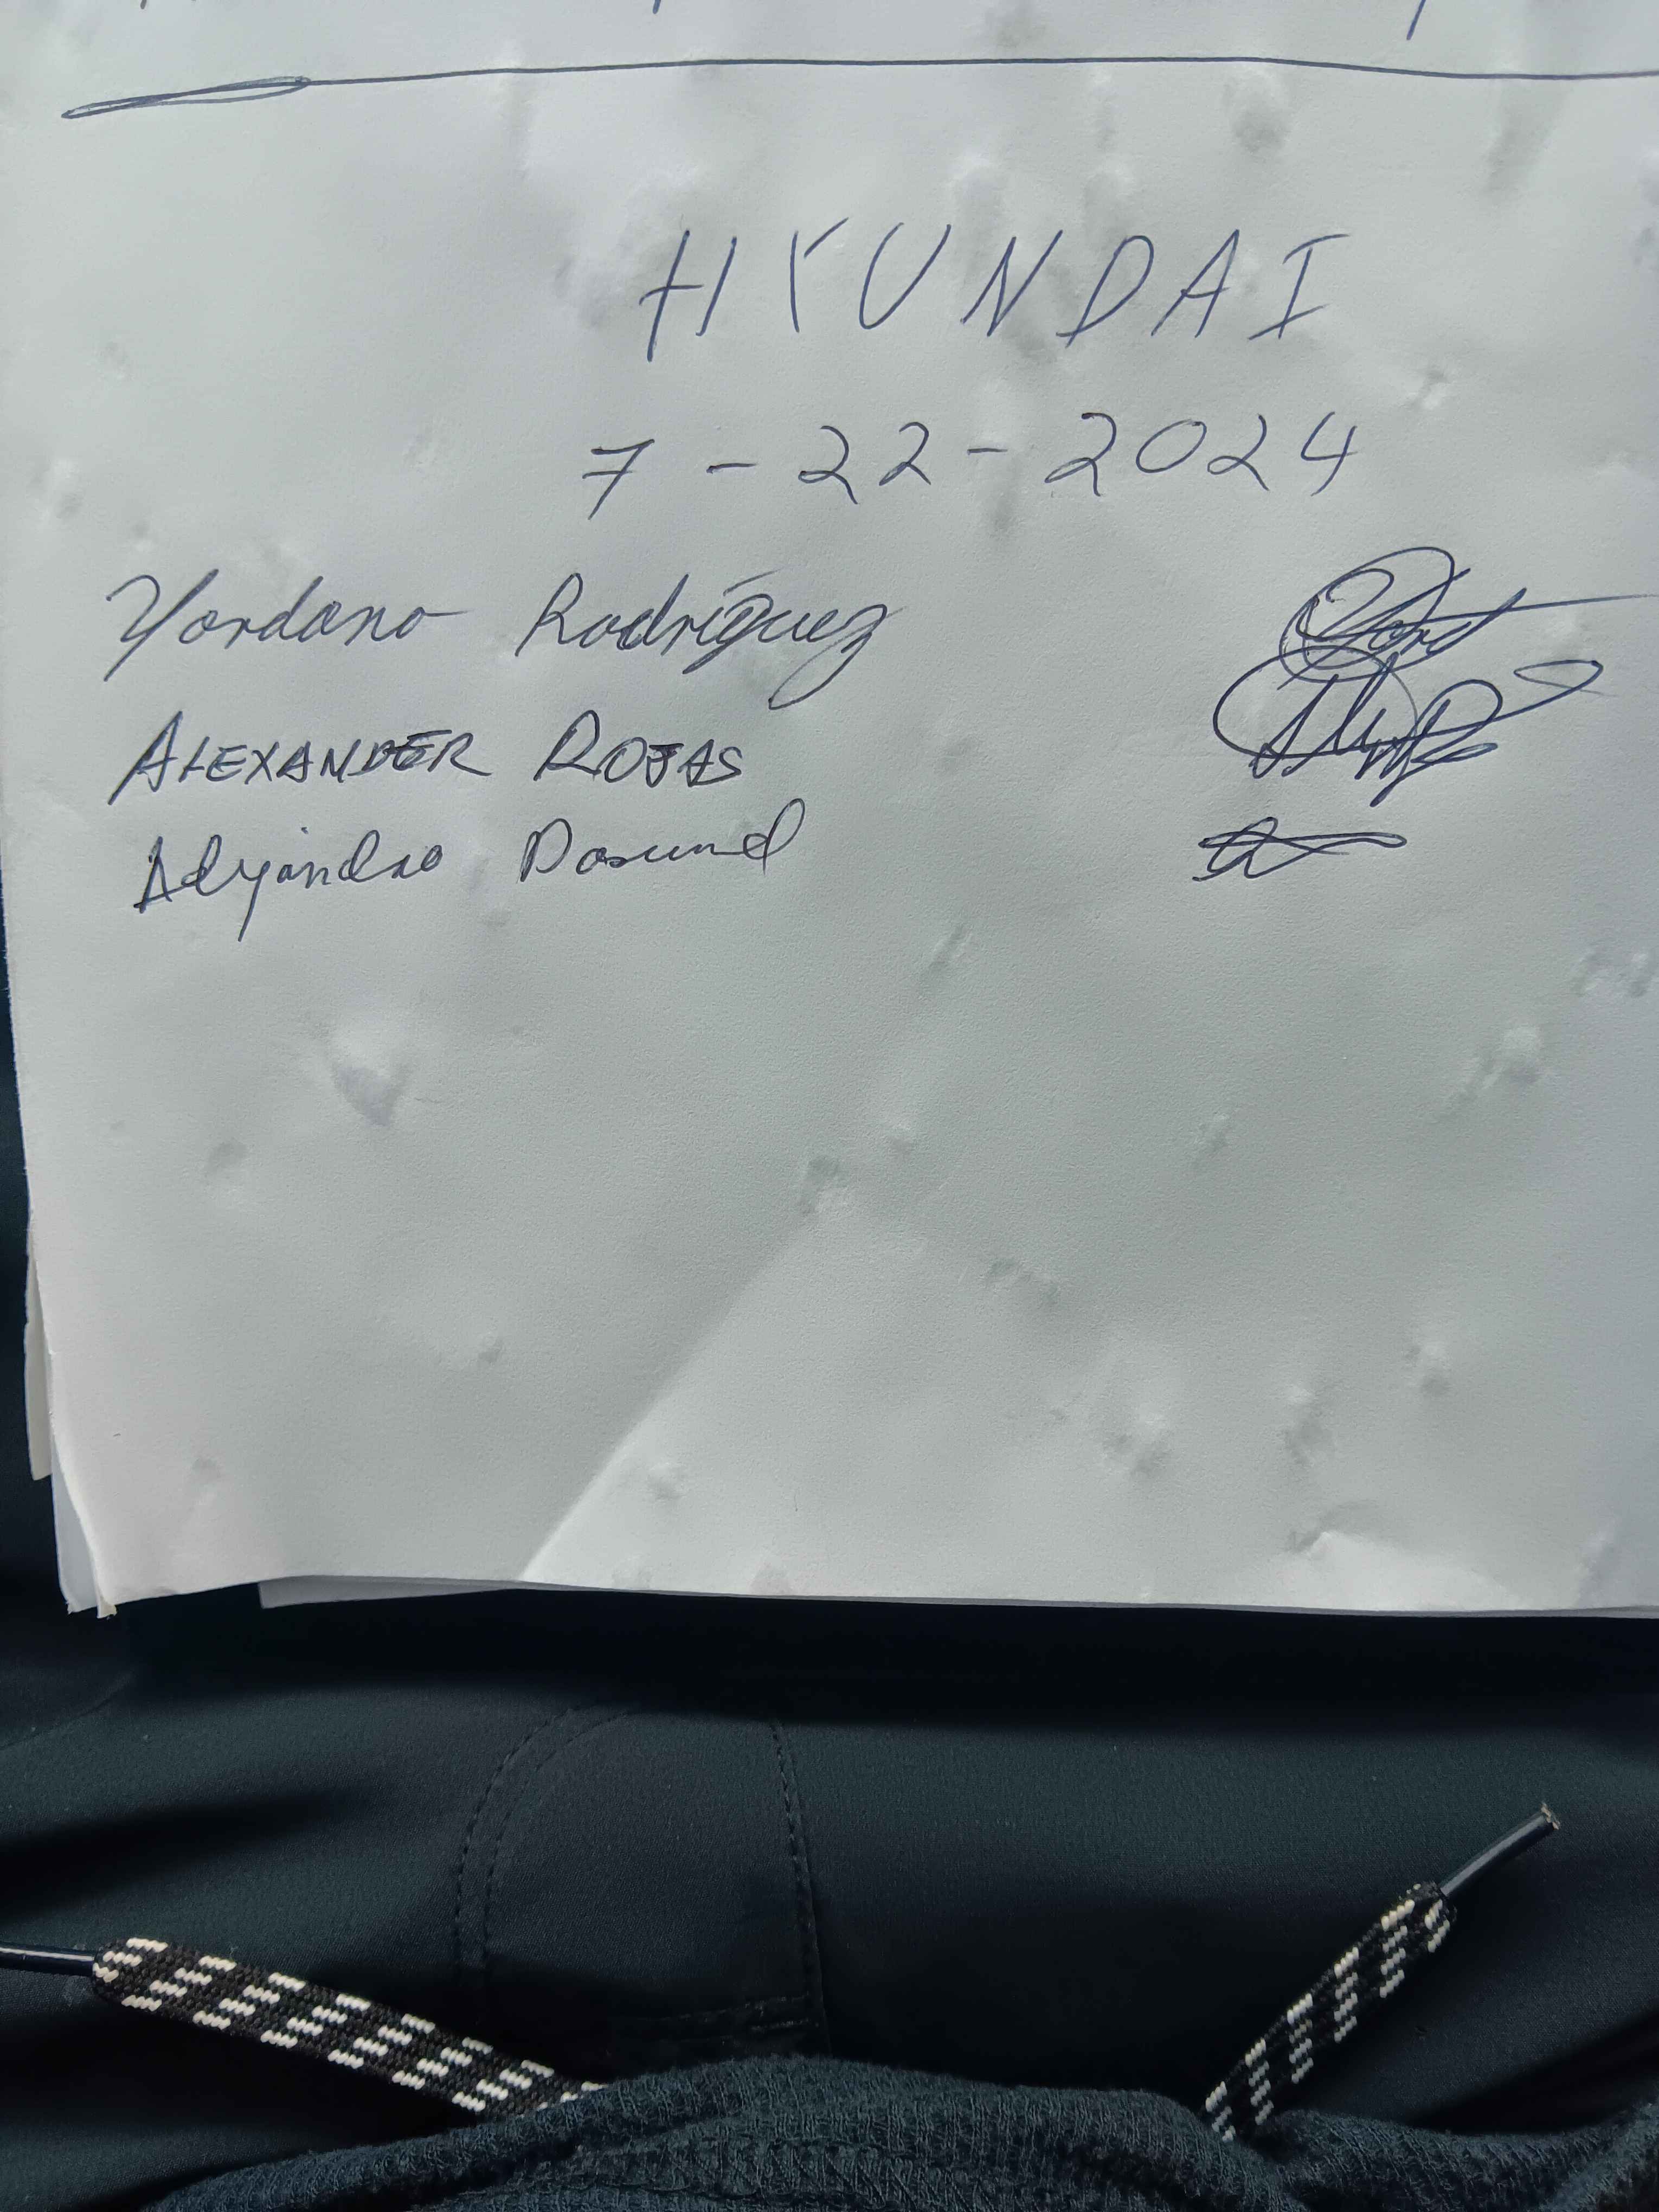 HYUNDAI
7-22-2024
Yordano Rodríguez
ALEXANDER ROJAS
Alejandro